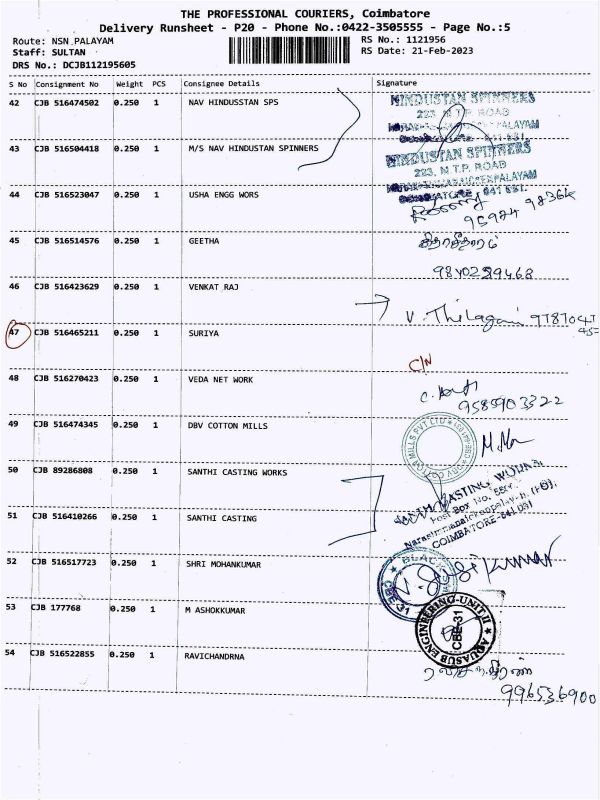 THE PROFESSIONAL COURIERS, Coimbatore
Delivery Runsheet - P20 - Phone No.:0422-3505555 - Page No.:5
Route: NSN_PALAYAM
RS No.: 1121956
Staff: SULTAN
RS Date: 21-Feb-2023
DRS No.: DCJB112195605
S No Consignment No Weight PCS Consignee Details Signature
42 CJB 516474502 0.250 1 NAV HINDUSSTAN SPS
HINDUSTAN SPINNERS
223, M.T.P. ROAD
43 CJB 516504418 0.250 1 M/S NAV HINDUSTAN SPINNERS
HINDUSTAN SPINNERS
223, M.T.P. ROAD
COIMBATORE - 641 031.
44 CJB 516523047 0.250 1 USHA ENGG WORS
95974 98364
45 CJB 516514576 0.250 1 GEETHA
46 CJB 516423629 0.250 1 VENKAT RAJ
V. Thilagam
47 CJB 516465211 0.250 1 SURIYA
C/N
48 CJB 516270423 0.250 1 VEDA NET WORK
9585903322
49 CJB 516474345 0.250 1 DBV COTTON MILLS
50 CJB 89286808 0.250 1 SANTHI CASTING WORKS
CASTING WORKS
Post Box No.
51 CJB 516410266 0.250 1 SANTHI CASTING
COIMBATORE-641 031
52 CJB 516517723 0.250 1 SHRI MOHANKUMAR
53 CJB 177768 0.250 1 M ASHOKKUMAR
AQUASUB ENGINEERING-UNIT-II
CBE-31
54 CJB 516522855 0.250 1 RAVICHANDRNA
996536900